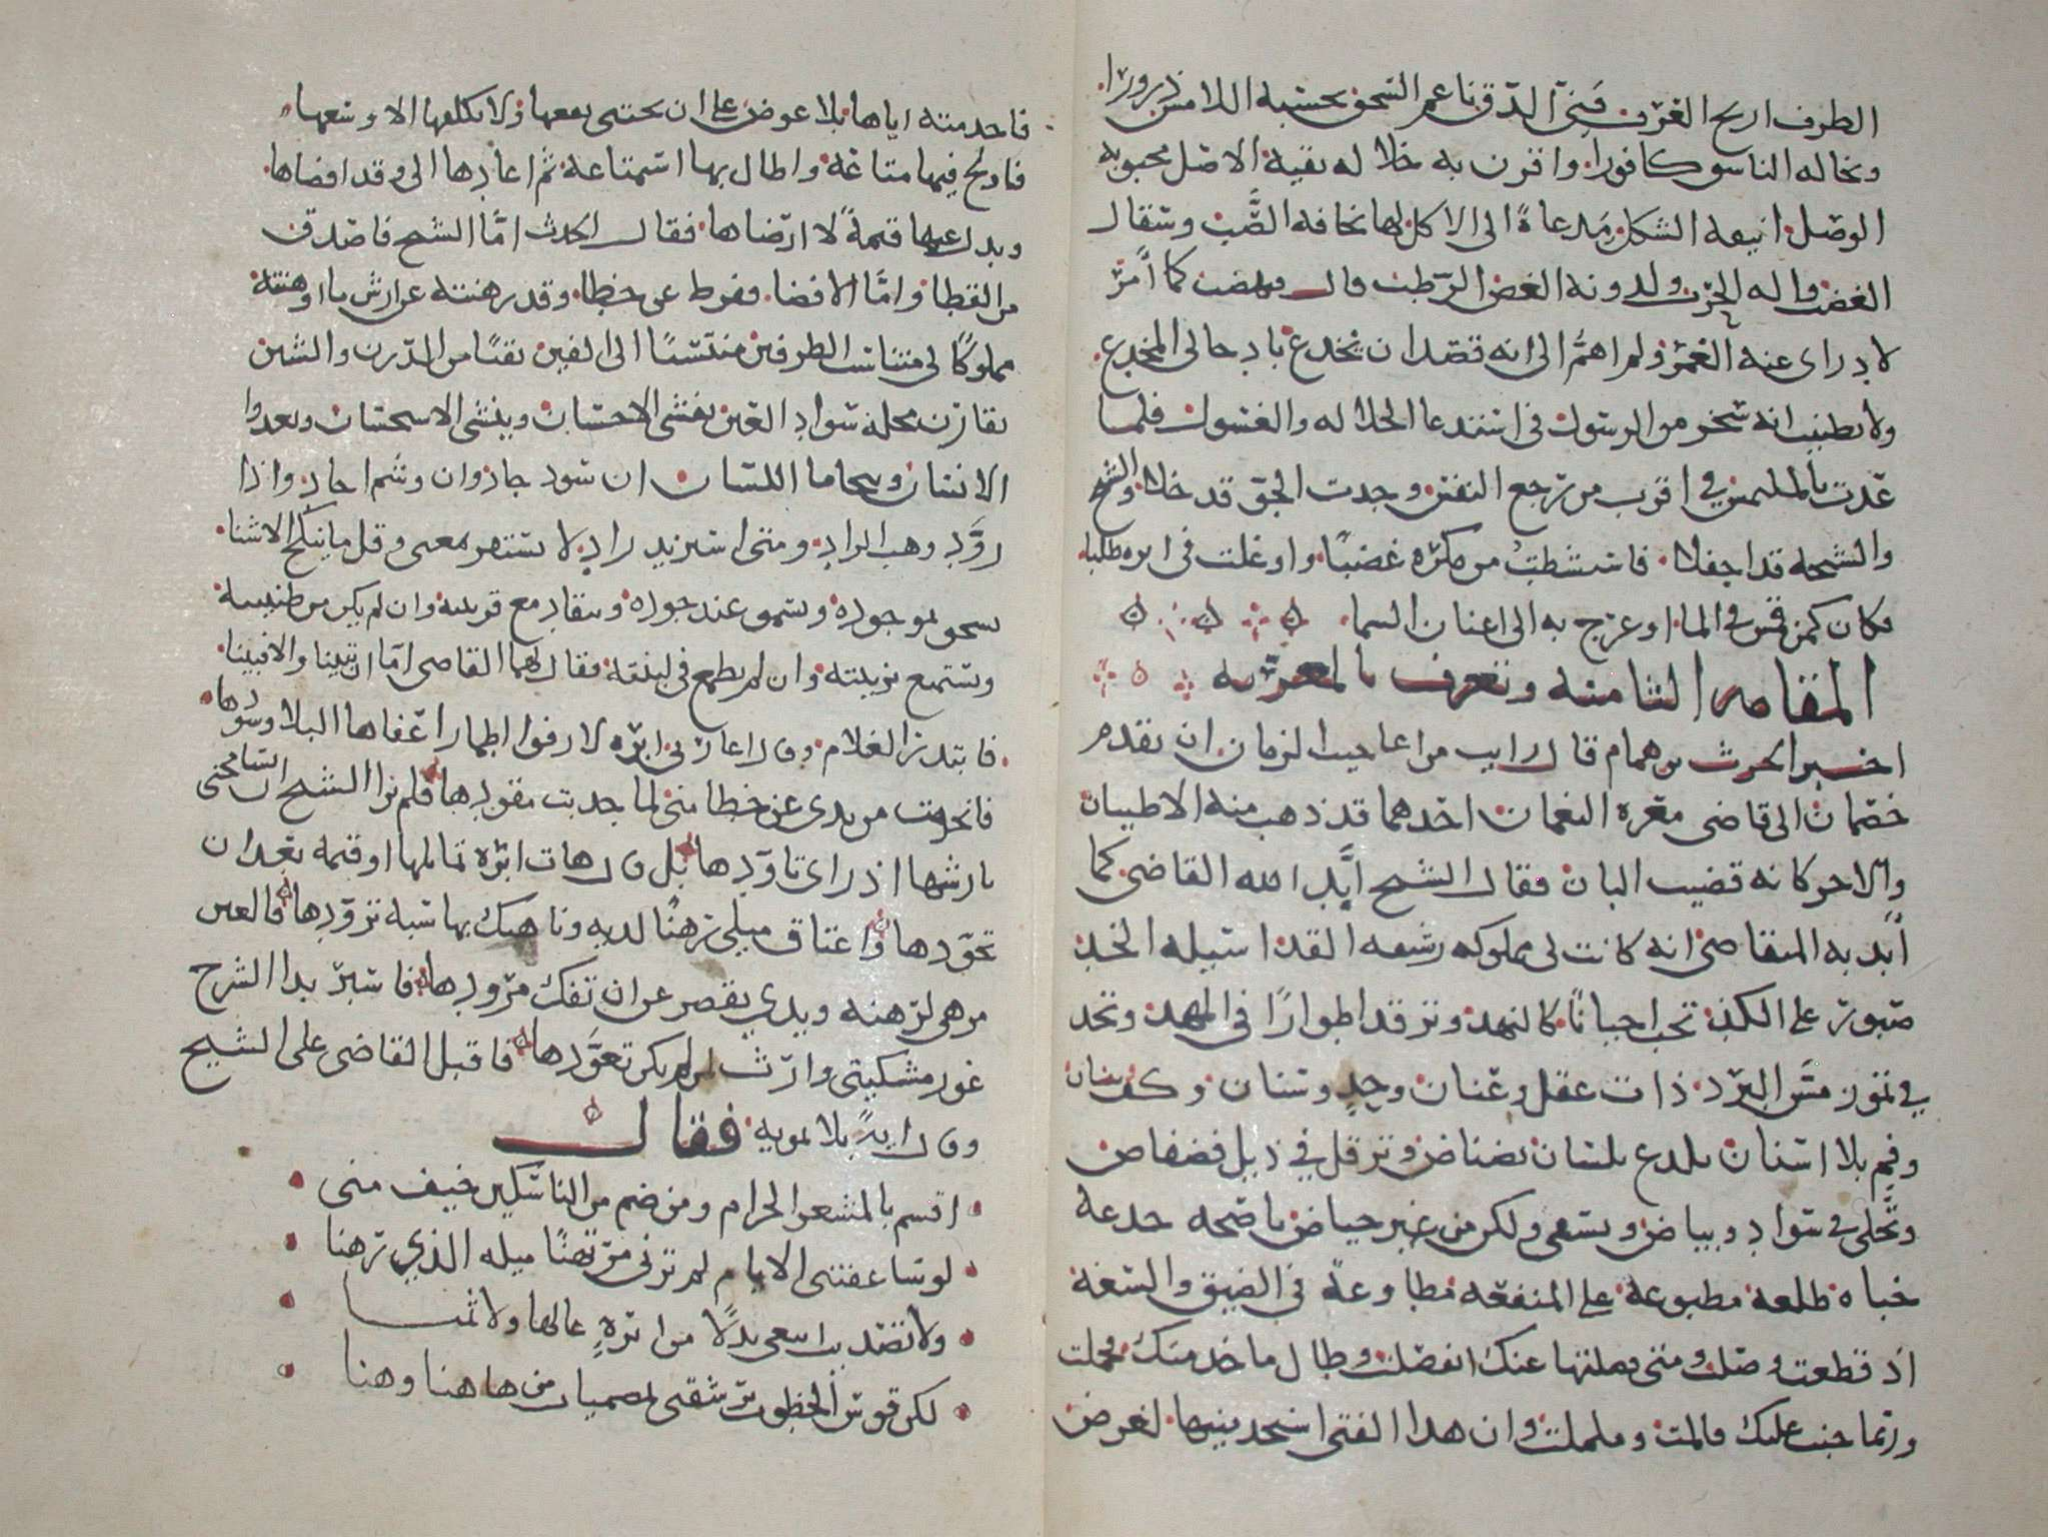 الطرف اريج العرف فتي الدق ناعم السحق يحسبه اللامس ذرورا
ويخاله الناسق كافورا واقرن به خلاله نقية الاصل محبوبه
الوصل انيقه الشكل مدعاة الى الاكل لها نحافه الصب وصقال
العضب واله الحرب ولدونه الغصن الرطب قال فنهضت كما امر
لادراى عنه الغمر ولم اهم الى انه قصد ان يخدع بادخالى المخدع
ولا تظنيت انه سخر من الرسول فى استدعا الخلاله والغسول فلما
عدت بالملتمس في اقرب من رجع النفس وجدت الجو قد خلا والشيخ
والشيخه قد اجفلا فاستشطت من مكره غضبا واوغلت فى اثره طلبا
فكان كمن قمس في الما او عرج به الى اعنان السما
المقامه الثامنه وتعرف بالمعريه
اخبر الحرث بن همام قال رايت من اعاجيب الزمان ان تقدم
خصمان الى قاضى معره النعمان احدهما قد ذهب منه الاطيبان
والاخر كانه قضيب البان فقال الشيخ ايد الله القاضى كما
ايد به المتقاضى انه كانت لى مملوكه رشيقه القد اسيله الخد
صبور على الكد تخب احيانا كالنهد وترقد اطوارا فى المهد وتجد
في تموز مس البرد ذات عقل وعنان وحد وسنان وكف ببنان
وفم بلا اسنان تلدغ بلسان نضناض وترفل في ذيل فضفاض
وتجلى في سواد وبياض وتسقى ولكن من غير حياض ناصحه خدعه
خباه طلعه مطبوعة على المنفعه مطاوعة فى الضيق والسعه
اذ قطعت وصلت ومتى فصلتها عنك انفصلت وطال ما خدمتك فجملت
وربما جنت عليك فالمت وململت وان هذا الفتى استخدمنيها لغرض
فاخدمته اياها بلا عوض على ان يجتنى نفعها ولا يكلفها الا وسعها
فاولج فيها متاعه واطال بها استمتاعه ثم اعادها الى وقد افضاها
وبذل عنها قيمة لا ارضاها فقال الحدث اما الشيخ فاصدق
من القطا واما الافضا ففرط عن خطا وقد رهنته عن ارش ما اوهنته
مملوكا لى متناسب الطرفين منتسبا الى القين نقيا من الدرن والشين
يقارن محله سواد العين يفشى الاحسان وينشى الاستحسان ويغذوا
الانسان ويتحاما اللسان ان سود جاد وان وسم اجاد واذا
زود وهب الزاد ومتى استزيد زاد لا يستقر بمغنى وقل ما ينكح الا مثنا
يسخو بموجوده ويسمو عند جوده وينقاد مع قرينه وان لم يكن من طينته
ويستمتع بزينته وان لم يطمع فى لينته فقال لهما القاضى اما ان تبينا والا فبينا
فابتدر الغلام وقال اعارنى ابره لا رفوا اطمارا عفاها البلا وسودها
فانخرمت من يدى عن خطا منى لما جذبت مقودها فلم يرا الشيخ ان يسامحنى
بارشها اذ راى تاودها بل قال هات ابره تماثلها او قيمه بعد ان
تجودها واعتاق ميلى رهنا لديه وناهيك بها سبه تزودها فالعين
مرهى لرهنه ويدي تقصر عن ان تفك مرودها فاسبر بذا الشرح
غور مسكنتى وارث لمن لم يكن تعودها فاقبل القاضى على الشيخ
وقال ايه بلا تمويه فقال
اقسم بالمشعر الحرام ومن ضم من الناسكين خيف منى
لو ساعفتنى الايام لم ترنى مرتهنا ميله الذي رهنا
ولا تصديت ابتغى بدلا من ابرة غالها ولا ثمنا
لكن قوس الخطوب ترشقنى بمصميات من هاهنا وهنا